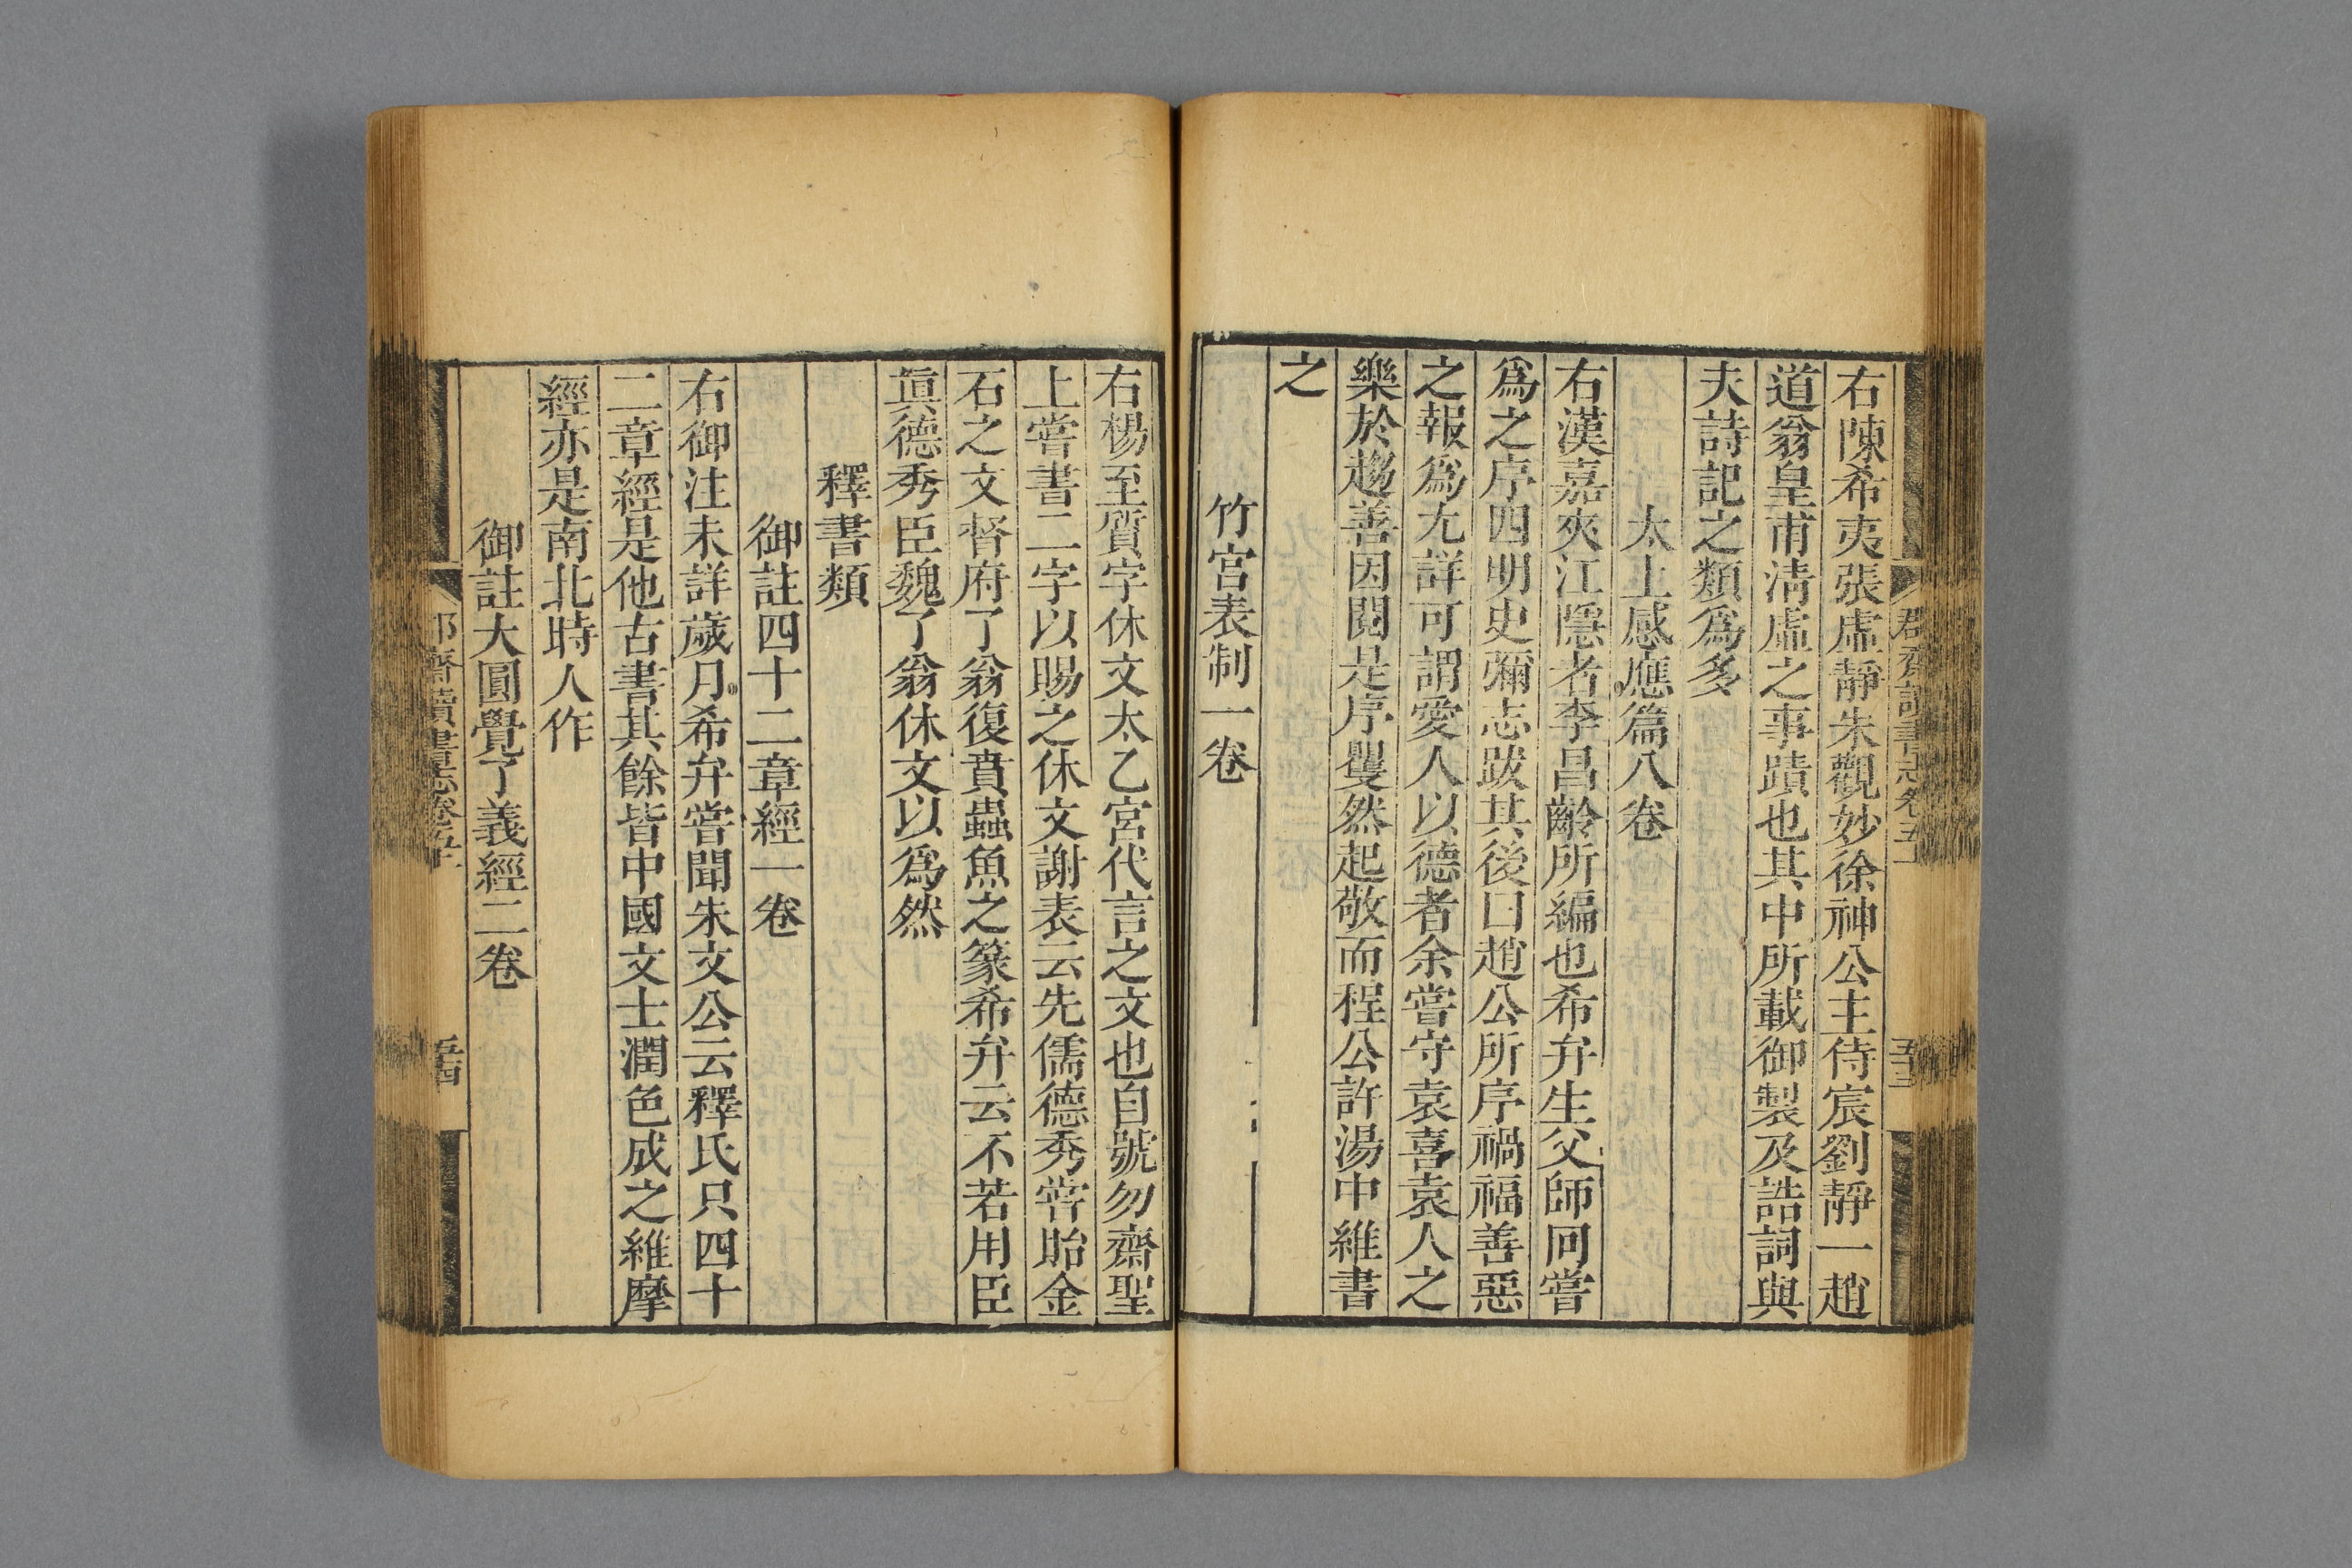 右陳希夷張虛靜朱觀妙徐神公主侍宸劉靜一趙
道翁皇甫淸虛之事蹟也其中所載御製及誥詞與
夫詩記之類爲多
太上感應篇八卷
右漢嘉夾江隱者李昌齡所編也希弁生父師回嘗
爲之序四明史彌志跋其後曰趙公所序禍福善惡
之報爲尤詳可謂愛人以德者余嘗守袁喜袁人之
樂於趨善因閱是序矍然起敬而程公許湯中維書
之
竹宮表制一卷
右楊至質字休文太乙宮代言之文也自號勿齋聖
上嘗書二字以賜之休文謝表云先儒德秀嘗貽金
石之文督府了翁復賁蟲魚之篆希弁云不若用臣
眞德秀臣魏了翁休文以爲然
釋書類
御註四十二章經一卷
右御注未詳歲月希弁嘗聞朱文公云釋氏只四十
二章經是他古書其餘皆中國文士潤色成之維摩
經亦是南北時人作
御註大圓覺了義經二卷